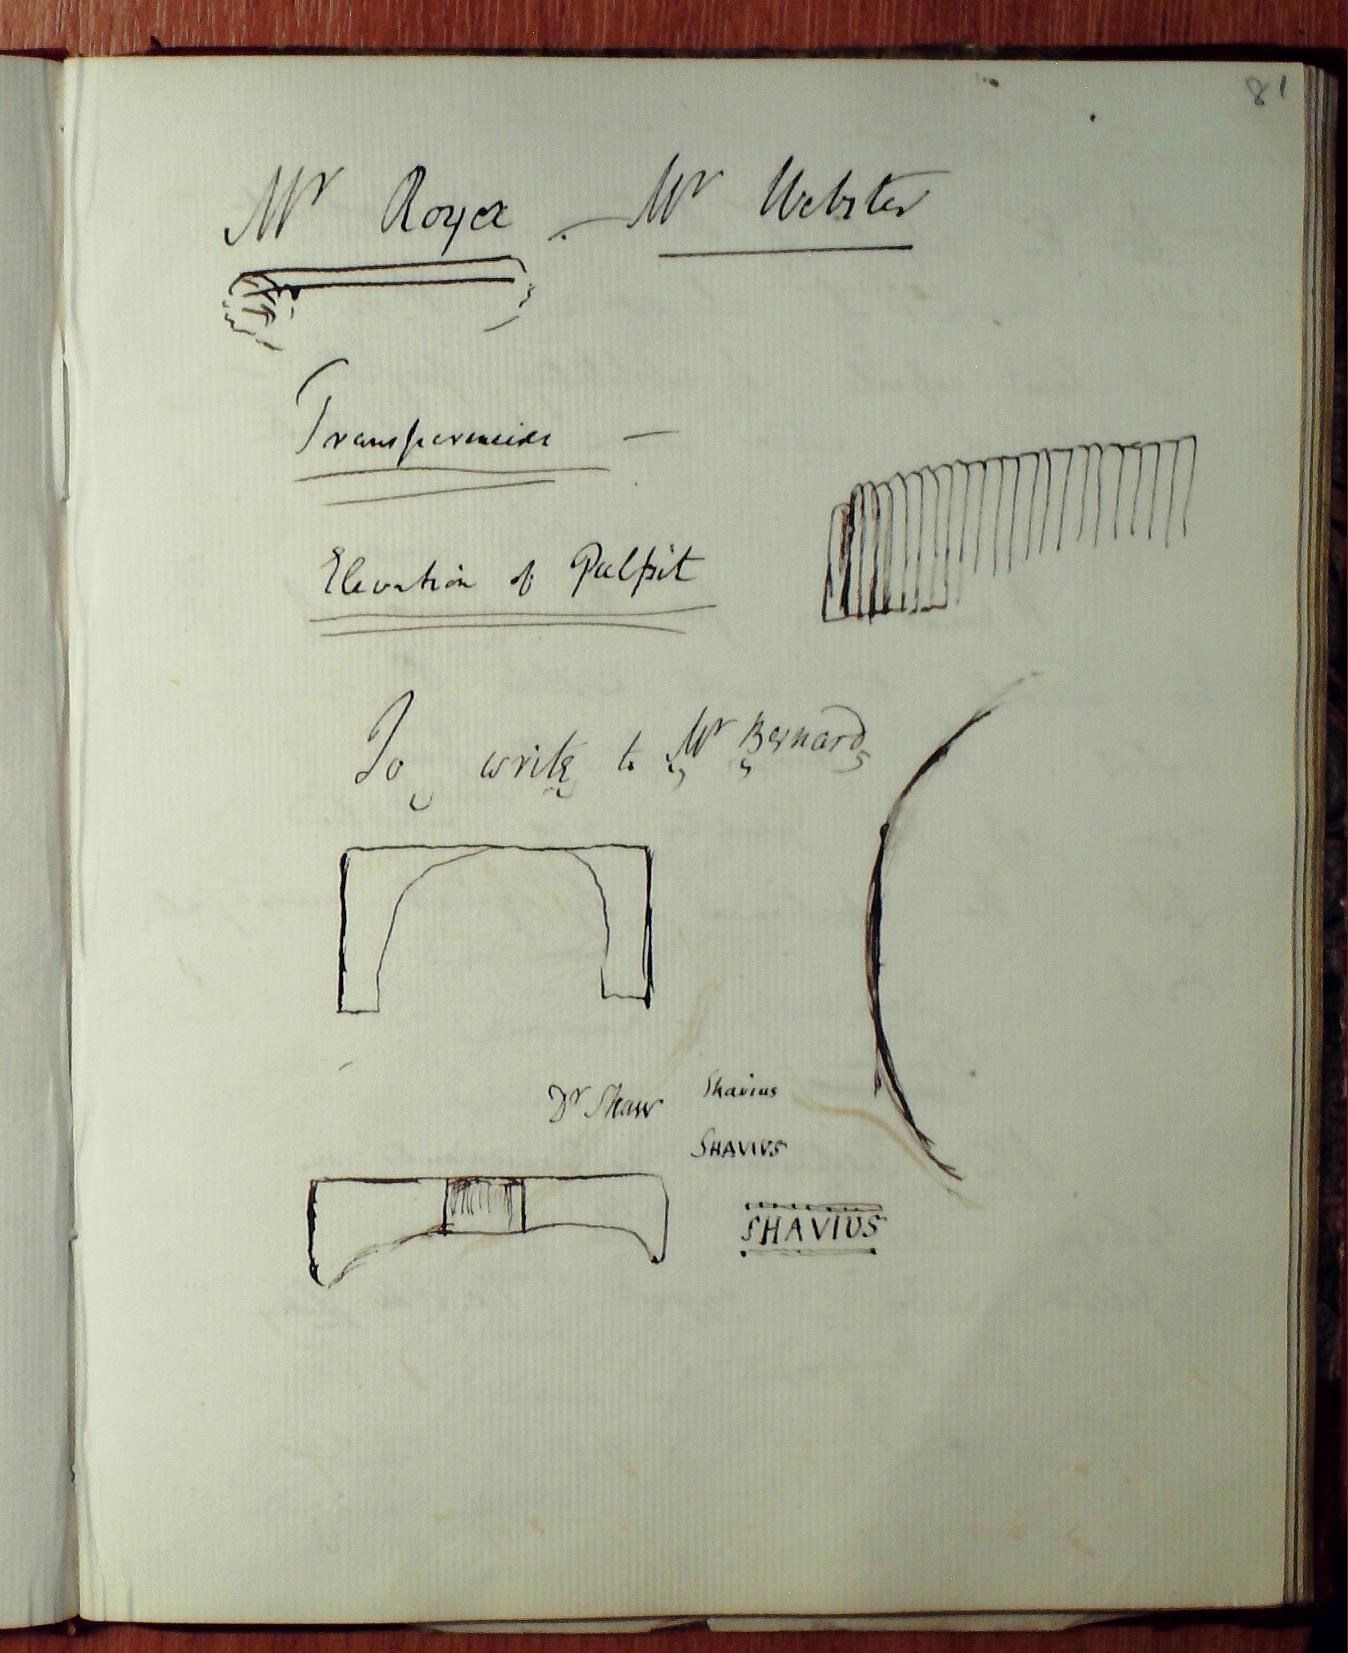 81
Mr Royce . – Mr Webster
Transparencies –
Elevation of Pulpit
To write to Mr Bernard
Dr Shaw Shavius
SHAVIUS
SHAVIUS